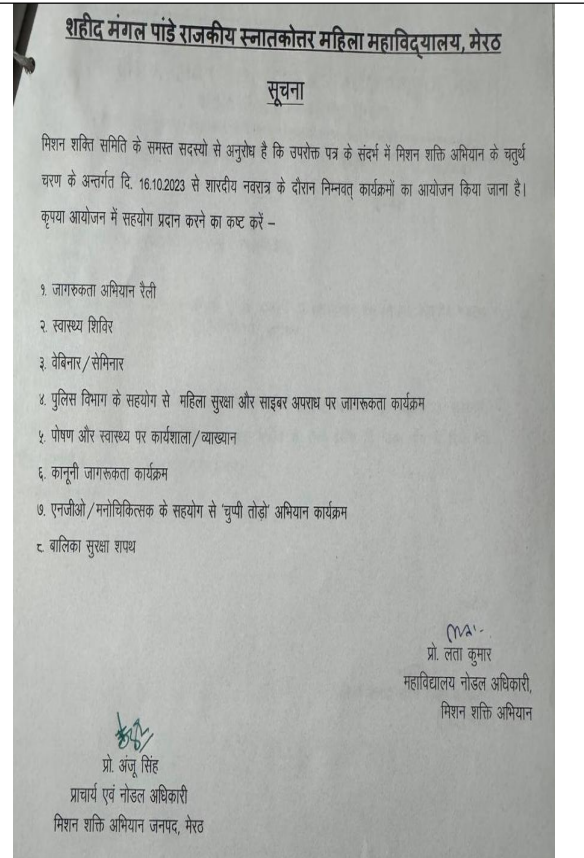 शहीद मंगल पांडे राजकीय स्नातकोत्तर महिला महाविद्यालय, मेरठ
सूचना
मिशन शक्ति समिति के समस्त सदस्यो से अनुरोध है कि उपरोक्त पत्र के संदर्भ में मिशन शक्ति अभियान के चतुर्थ
चरण के अन्तर्गत दि. 16.10.2023 से शारदीय नवरात्र के दौरान निम्नवत् कार्यक्रमों का आयोजन किया जाना है।
कृपया आयोजन में सहयोग प्रदान करने का कष्ट करें –
१. जागरुकता अभियान रैली
२. स्वास्थ्य शिविर
३. वेबिनार/सेमिनार
४. पुलिस विभाग के सहयोग से महिला सुरक्षा और साइबर अपराध पर जागरूकता कार्यक्रम
५. पोषण और स्वास्थ्य पर कार्यशाला/व्याख्यान
६. कानूनी जागरूकता कार्यक्रम
७. एनजीओ/मनोचिकित्सक के सहयोग से 'चुप्पी तोड़ो' अभियान कार्यक्रम
८. बालिका सुरक्षा शपथ
प्रो. लता कुमार
महाविद्यालय नोडल अधिकारी,
मिशन शक्ति अभियान
प्रो. अंजू सिंह
प्राचार्य एवं नोडल अधिकारी
मिशन शक्ति अभियान जनपद, मेरठ